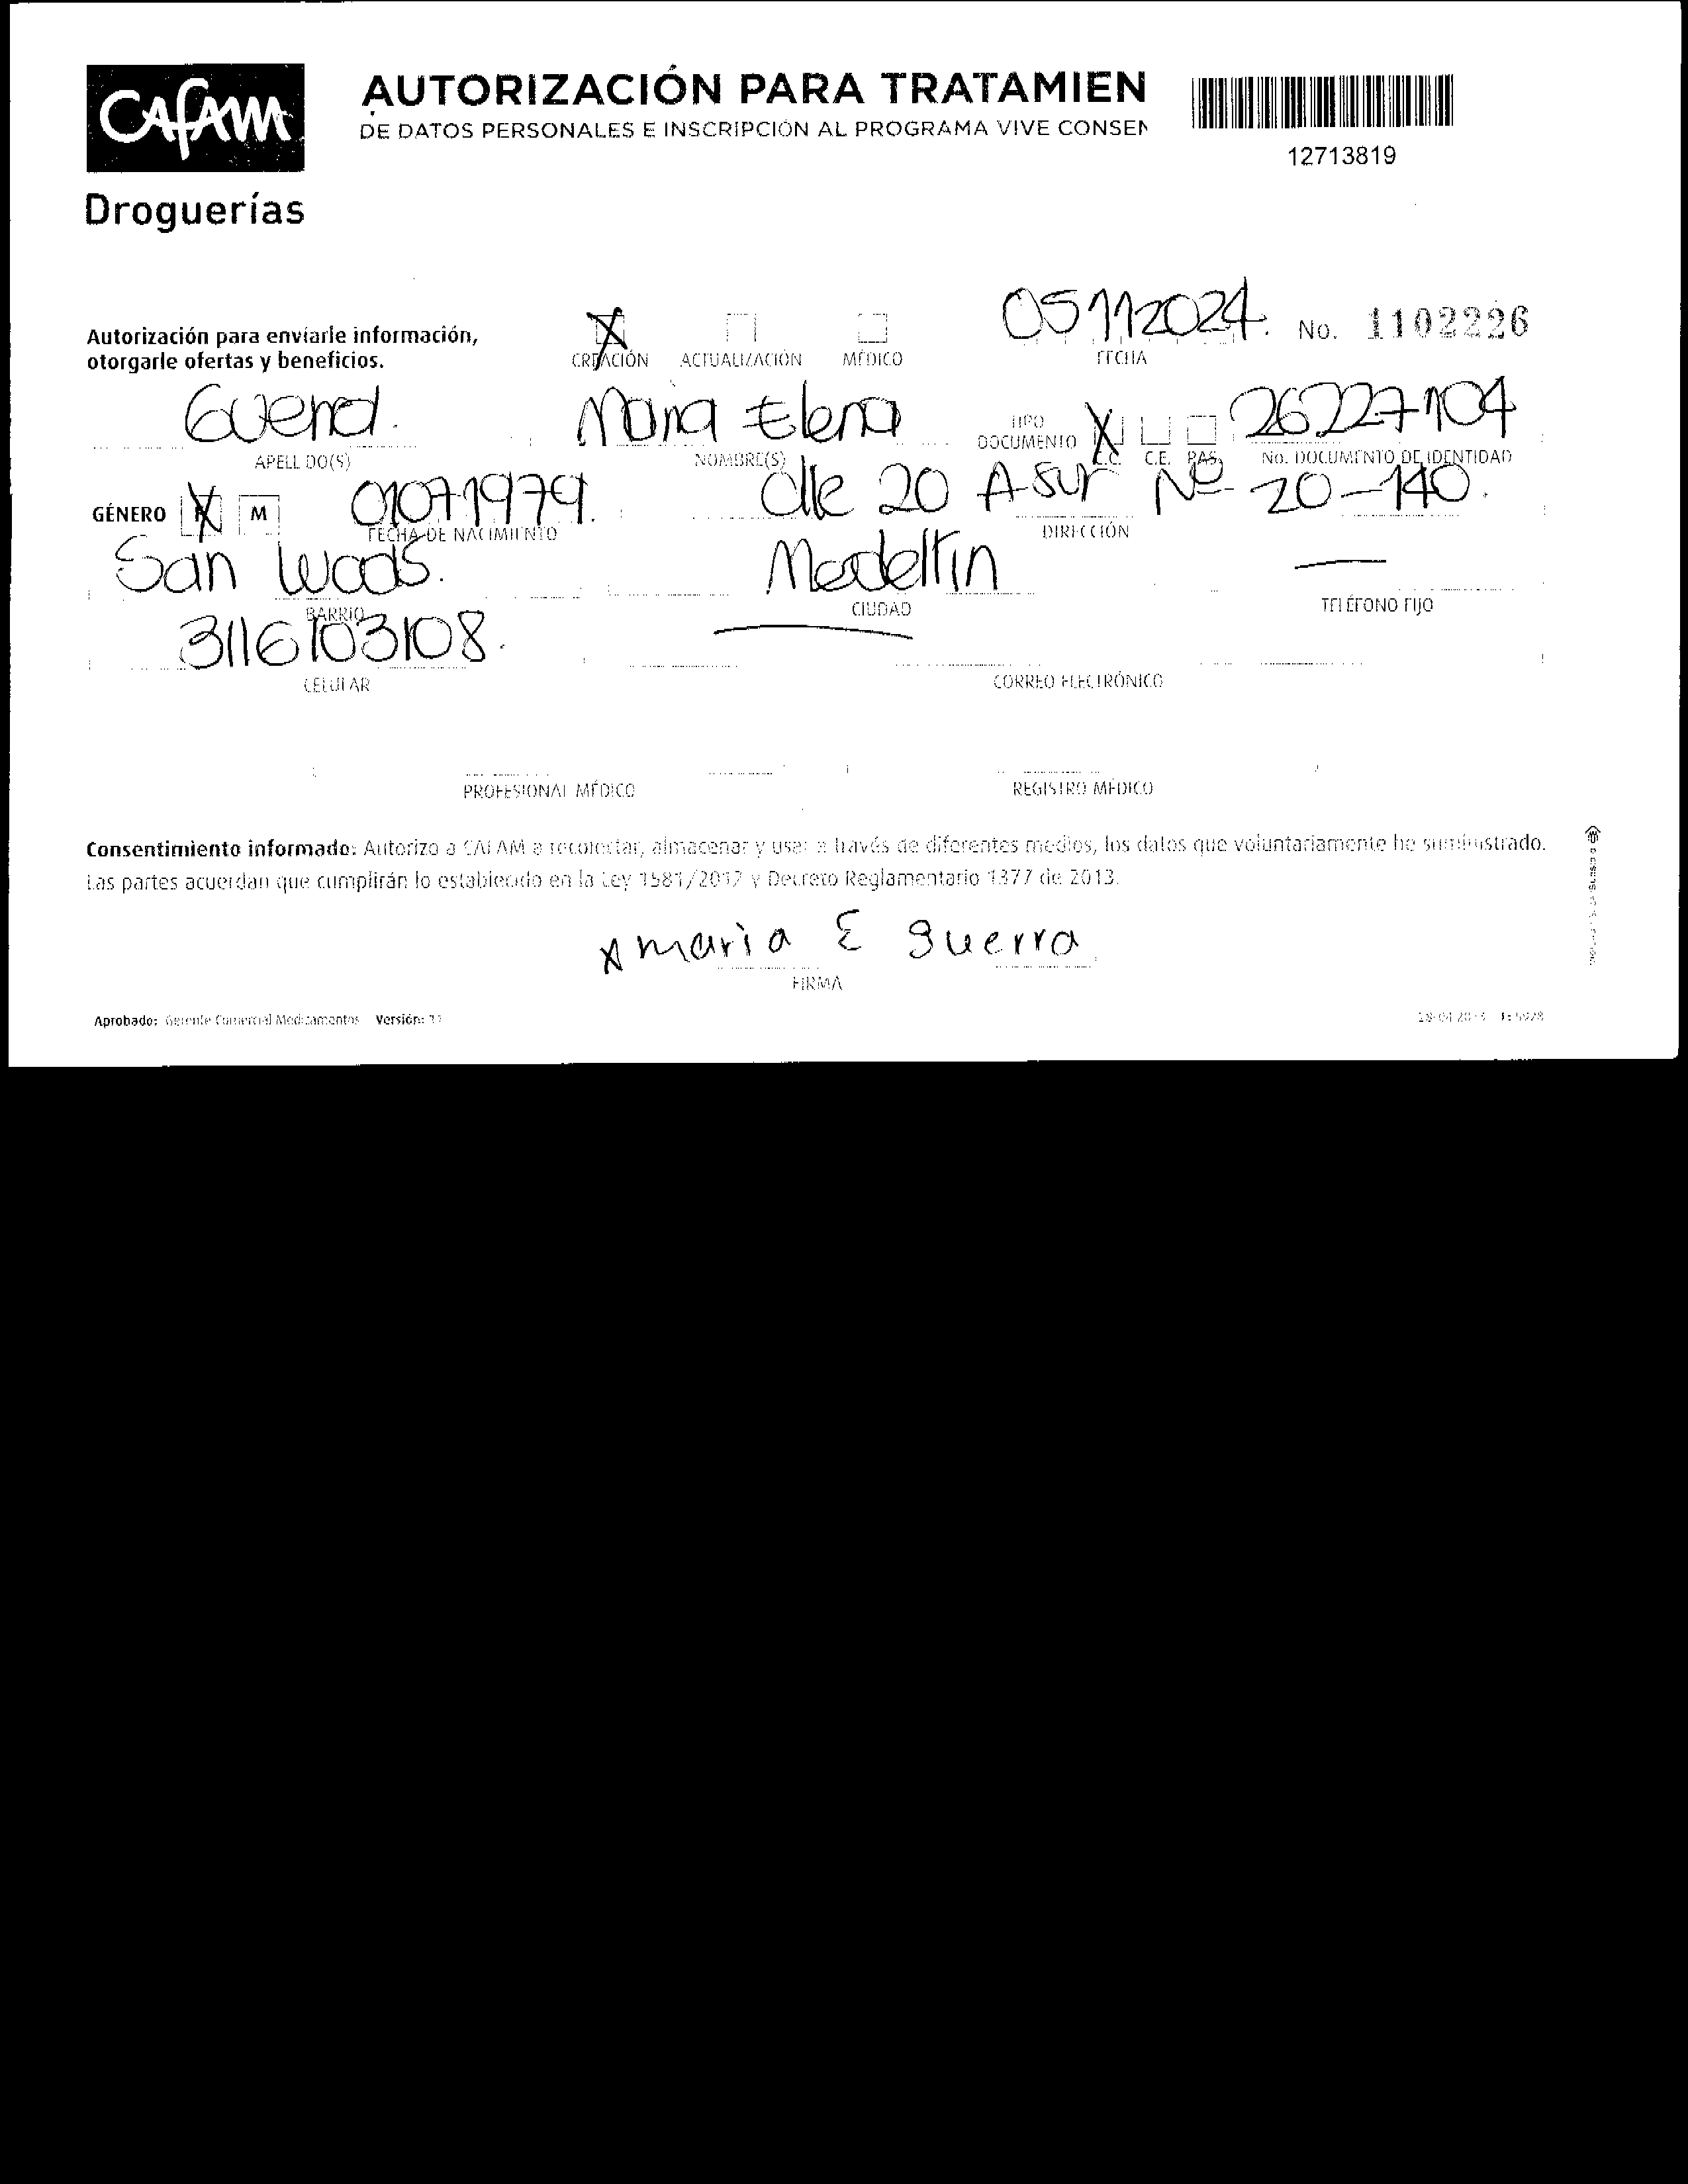 CAFAM
Droguerías
AUTORIZACIÓN PARA TRATAMIEN
DE DATOS PERSONALES E INSCRIPCIÓN AL PROGRAMA VIVE CONSEN
12713819
Autorización para enviarle información,
otorgarle ofertas y beneficios.
X CREACIÓN ACTUALIZACIÓN MÉDICO
05112024. FECHA
No. 1102226
Guerra. Maria Elena X 26227104
APELLIDO(S) NOMBRE(S) TIPO DOCUMENTO C.C. C.E. PAS. No. DOCUMENTO DE IDENTIDAD
GÉNERO X M 01071979. Clle 20 A Sur Nº 20-140.
FECHA DE NACIMIENTO DIRECCIÓN
San Lucas. Medellin —
BARRIO CIUDAD TELÉFONO FIJO
3116103108. —
CELULAR CORREO ELECTRÓNICO
PROFESIONAL MÉDICO REGISTRO MÉDICO
Consentimiento informado: Autorizo a CAFAM a recolectar, almacenar y usar a través de diferentes medios, los datos que voluntariamente he suministrado.
Las partes acuerdan que cumplirán lo establecido en la Ley 1581/2012 y Decreto Reglamentario 1377 de 2013.
x maria E guerra
FIRMA
Aprobado: Gerente Comercial Medicamentos Versión: